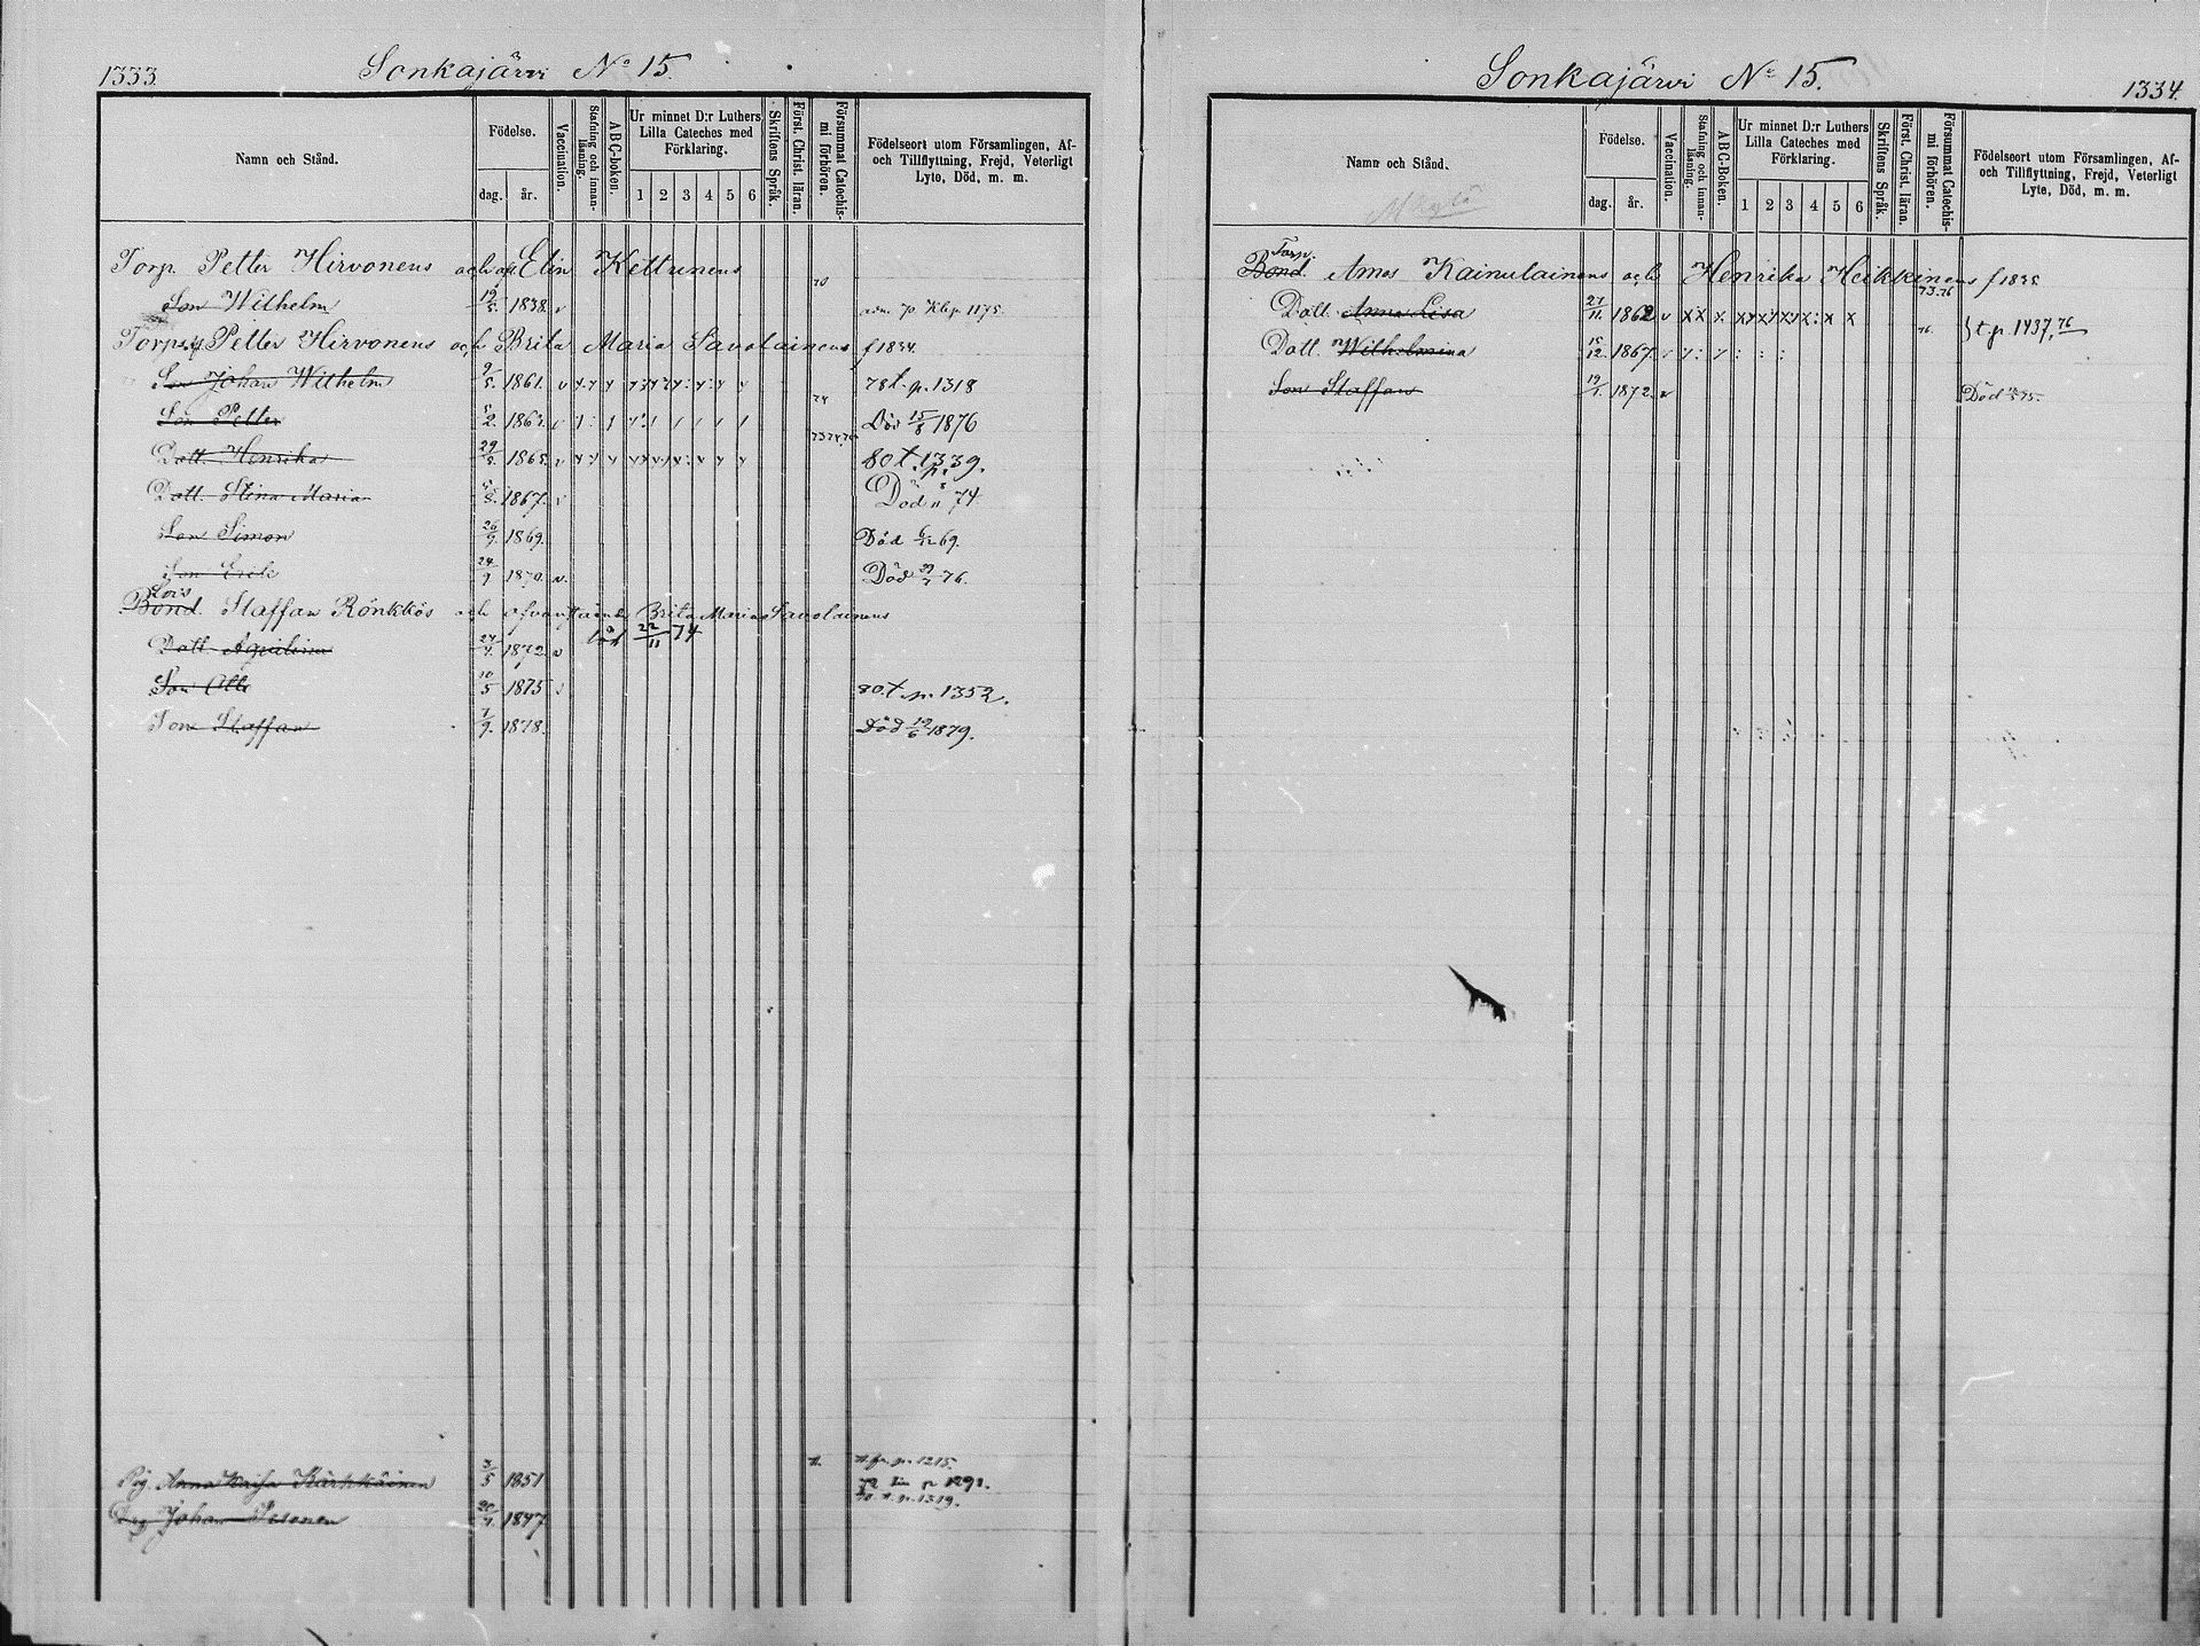 1333.
Sonkajärvi No 15.
Namn och Stånd.
Födelse.
dag.
år.
Vaccination.
Stafning och innan-läsning.
ABC-boken.
Ur minnet D:r Luthers Lilla Cateches med Förklaring.
1 2 3 4 5 6
Skriftens Språk.
Först. Christ. läran.
Försummat Catechis-mi förhören.
Födelseort utom Församlingen, Af- och Tillflyttning, Frejd, Veterligt Lyte, Död, m. m.
Torp. Petter Hirvonens och Elin Kettunens
Son Wilhelm 19/5. 1838. v
Petter Hirvonens och Brita Maria Savolainens f 1834.
Son Johan Wilhelm 9/5. 1861. v 78 t. p. 1318
Son Petter 2. Död 15/8 1876
Dott. Henrika 29/8. 1865. v 80 t. p. 1339.
Dott. Stina Maria 1867. v Död 74
Son Simon 26/9. 1869. Död 69.
Son Erik 1870. v. Död 76.
Lois
Bond. Staffan Rönkkös och Brita Maria Savolainens
22/11 74
Dott. 1872. v
Son Olli 10/5 1875 80. t. p. 1352.
Son Staffan 7/9. 1878. Död 19/6 1879.
Pig. Anna Kaisa Kärkkäinen 3/5 1851 p. 1215.
p. 1319.
Johan Pesonen 1847
Sonkajärvi No 15.
1334.
Namn och Stånd.
Födelse.
dag.
år.
Vaccination.
Stafning och innan-läsning.
ABC-Boken.
Ur minnet D:r Luthers Lilla Cateches med Förklaring.
1 2 3 4 5 6
Skriftens Språk.
Först. Christ. läran.
Försummat Catechis-mi förhören.
Födelseort utom Församlingen, Af- och Tillflyttning, Frejd, Veterligt Lyte, Död, m. m.
Torp.
Bond. Amos Kainulainens och Henrika Heikkinens
73.76
Dott. Anna Lisa 27/11. 1862 v
t. p. 1437, 76
Dott. Wilhelmina 15/12. 1867. 76.
Son Staffan 19/1. 1872. v Död 75.